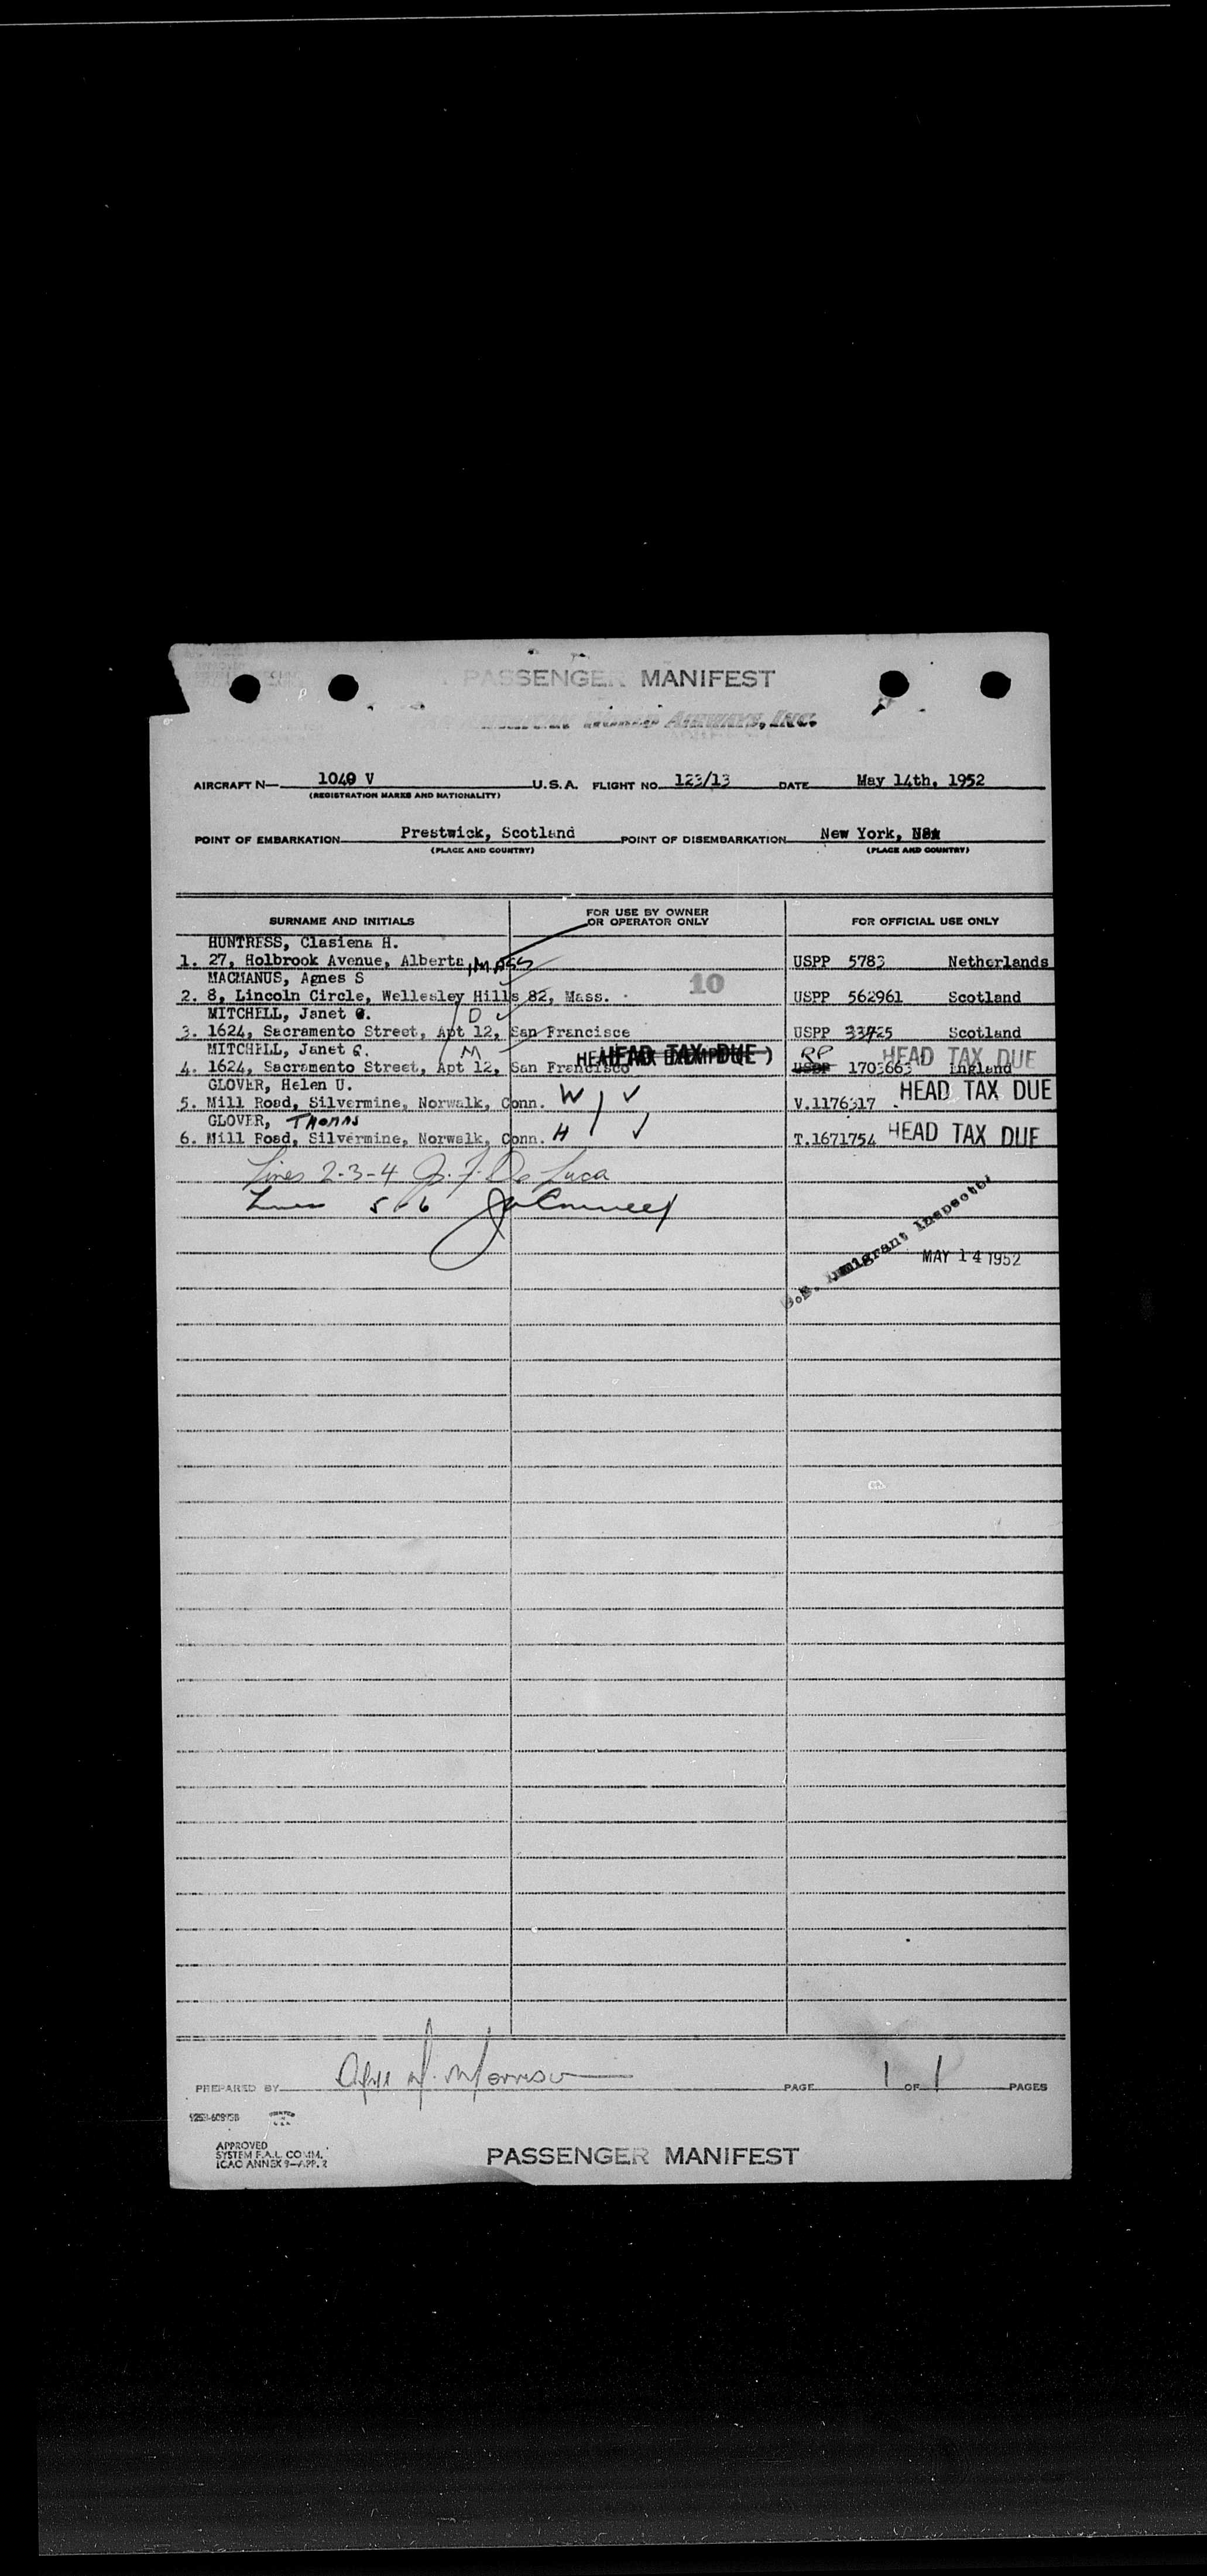 PASSENGER MANIFEST
AIRWAYS, INC.
AIRCRAFT N— 1040 V U.S.A. FLIGHT NO. 123/13 DATE May 14th, 1952
(REGISTRATION MARKS AND NATIONALITY)
POINT OF EMBARKATION Prestwick, Scotland POINT OF DISEMBARKATION New York,
(PLACE AND COUNTRY) (PLACE AND COUNTRY)
SURNAME AND INITIALS FOR USE BY OWNER OR OPERATOR ONLY FOR OFFICIAL USE ONLY
HUNTRESS, Clasiena H.
1. 27, Holbrook Avenue, Alberta, MASS USPP 5783 Netherlands
MACMANUS, Agnes S 10
2. 8, Lincoln Circle, Wellesley Hills 82, Mass. USPP 562961 Scotland
MITCHELL, Janet G. D
3. 1624, Sacramento Street, Apt 12, San Francisco USPP 33725 Scotland
MITCHELL, Janet G. M HEAD TAX DUE ) RP HEAD TAX DUE
4. 1624, Sacramento Street, Apt 12, San Francisco USPP 1703663 England
GLOVER, Helen U. HEAD TAX DUE
5. Mill Road, Silvermine, Norwalk, Conn. W V.1176317
GLOVER, THOMAS
6. Mill Road, Silvermine, Norwalk, Conn. H T.1671754 HEAD TAX DUE
Lines 2-3-4 J. F. De Luca
Lines 5-6
U.S. Immigrant Inspector
MAY 14 1952
PREPARED BY Morrison PAGE 1 OF 1 PAGES
PRINTED IN U.S.A.
APPROVED
SYSTEM F.A.L. COMM.
ICAO ANNEX 9—APP. 2
PASSENGER MANIFEST